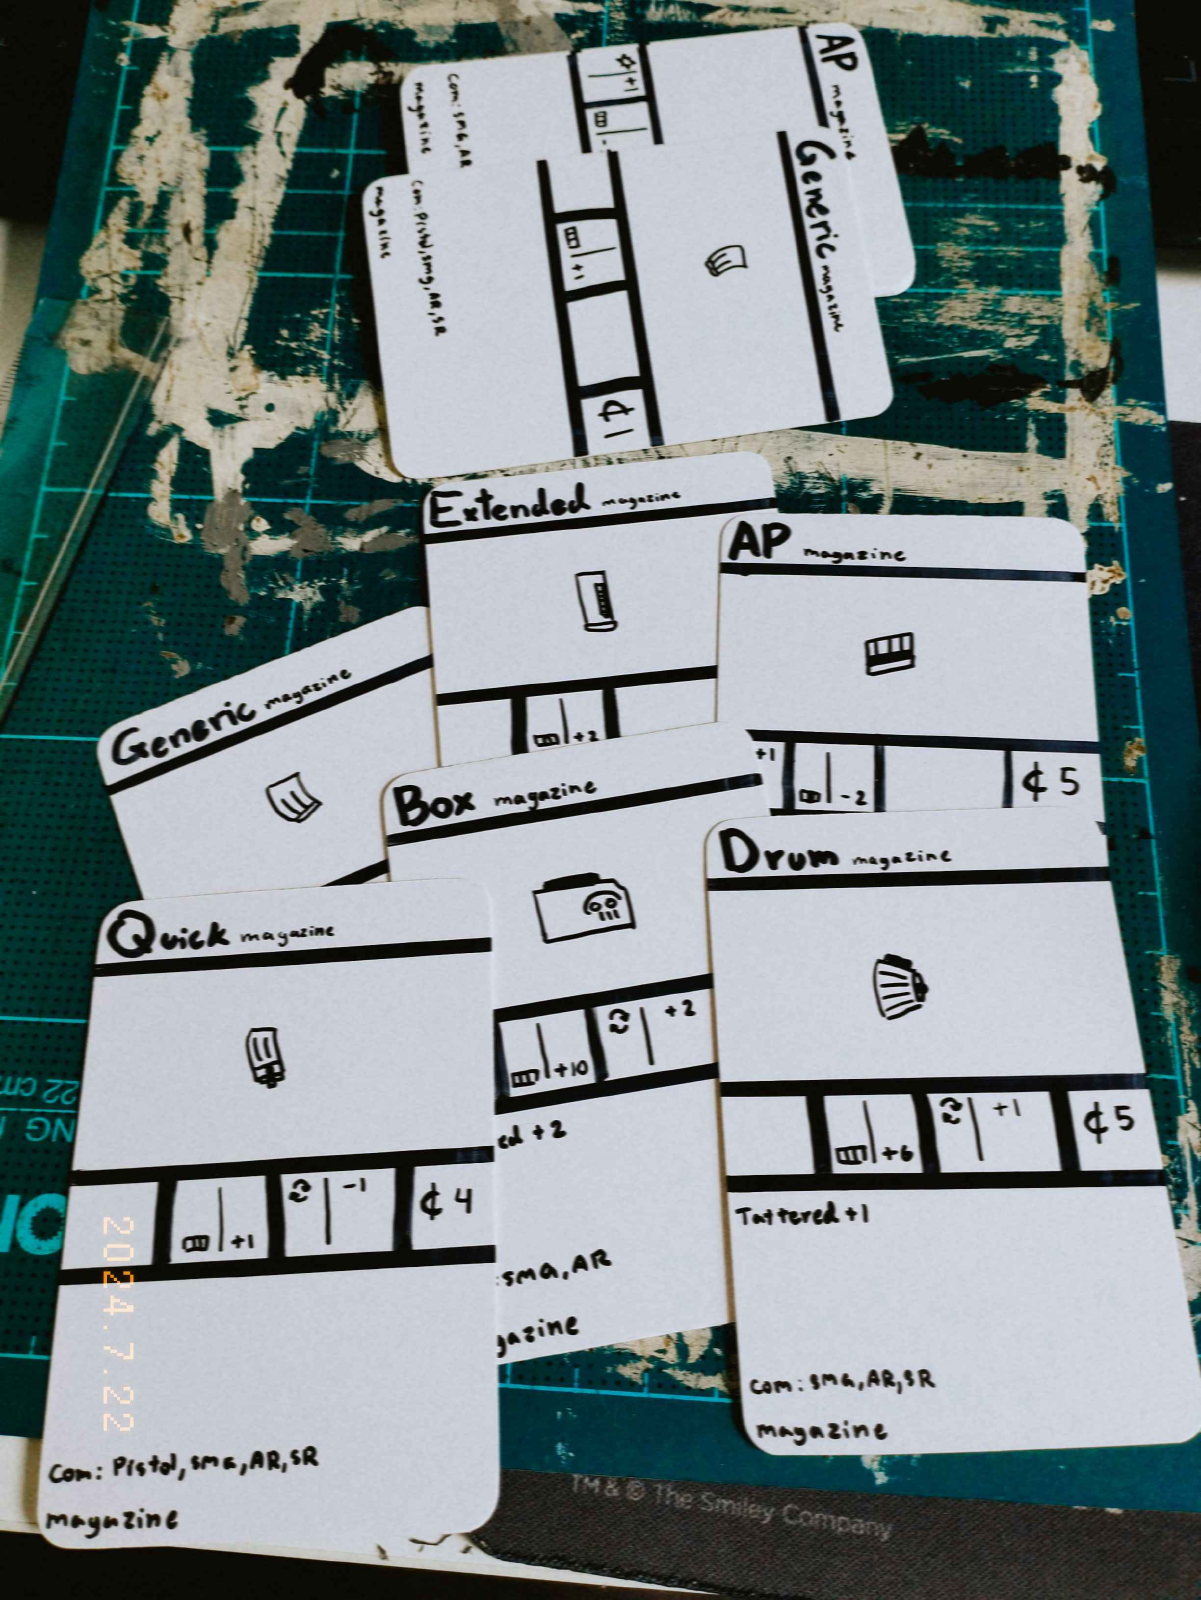 AP magazine
+1
-
Com: SMG, AR
magazine
Generic magazine
+1
¢1
Com: Pistol, SMG, AR, SR
magazine
Extended magazine
+2
AP magazine
+1
-2
¢5
Generic magazine
Box magazine
+10
+2
ed +2
:SMG, AR
gazine
Drum magazine
+6
+1
¢5
Tattered +1
Com: SMG, AR, SR
magazine
Quick magazine
+1
-1
¢4
Com: Pistol, SMG, AR, SR
magazine
2024.7.22
22 cm
TM & © The Smiley Company